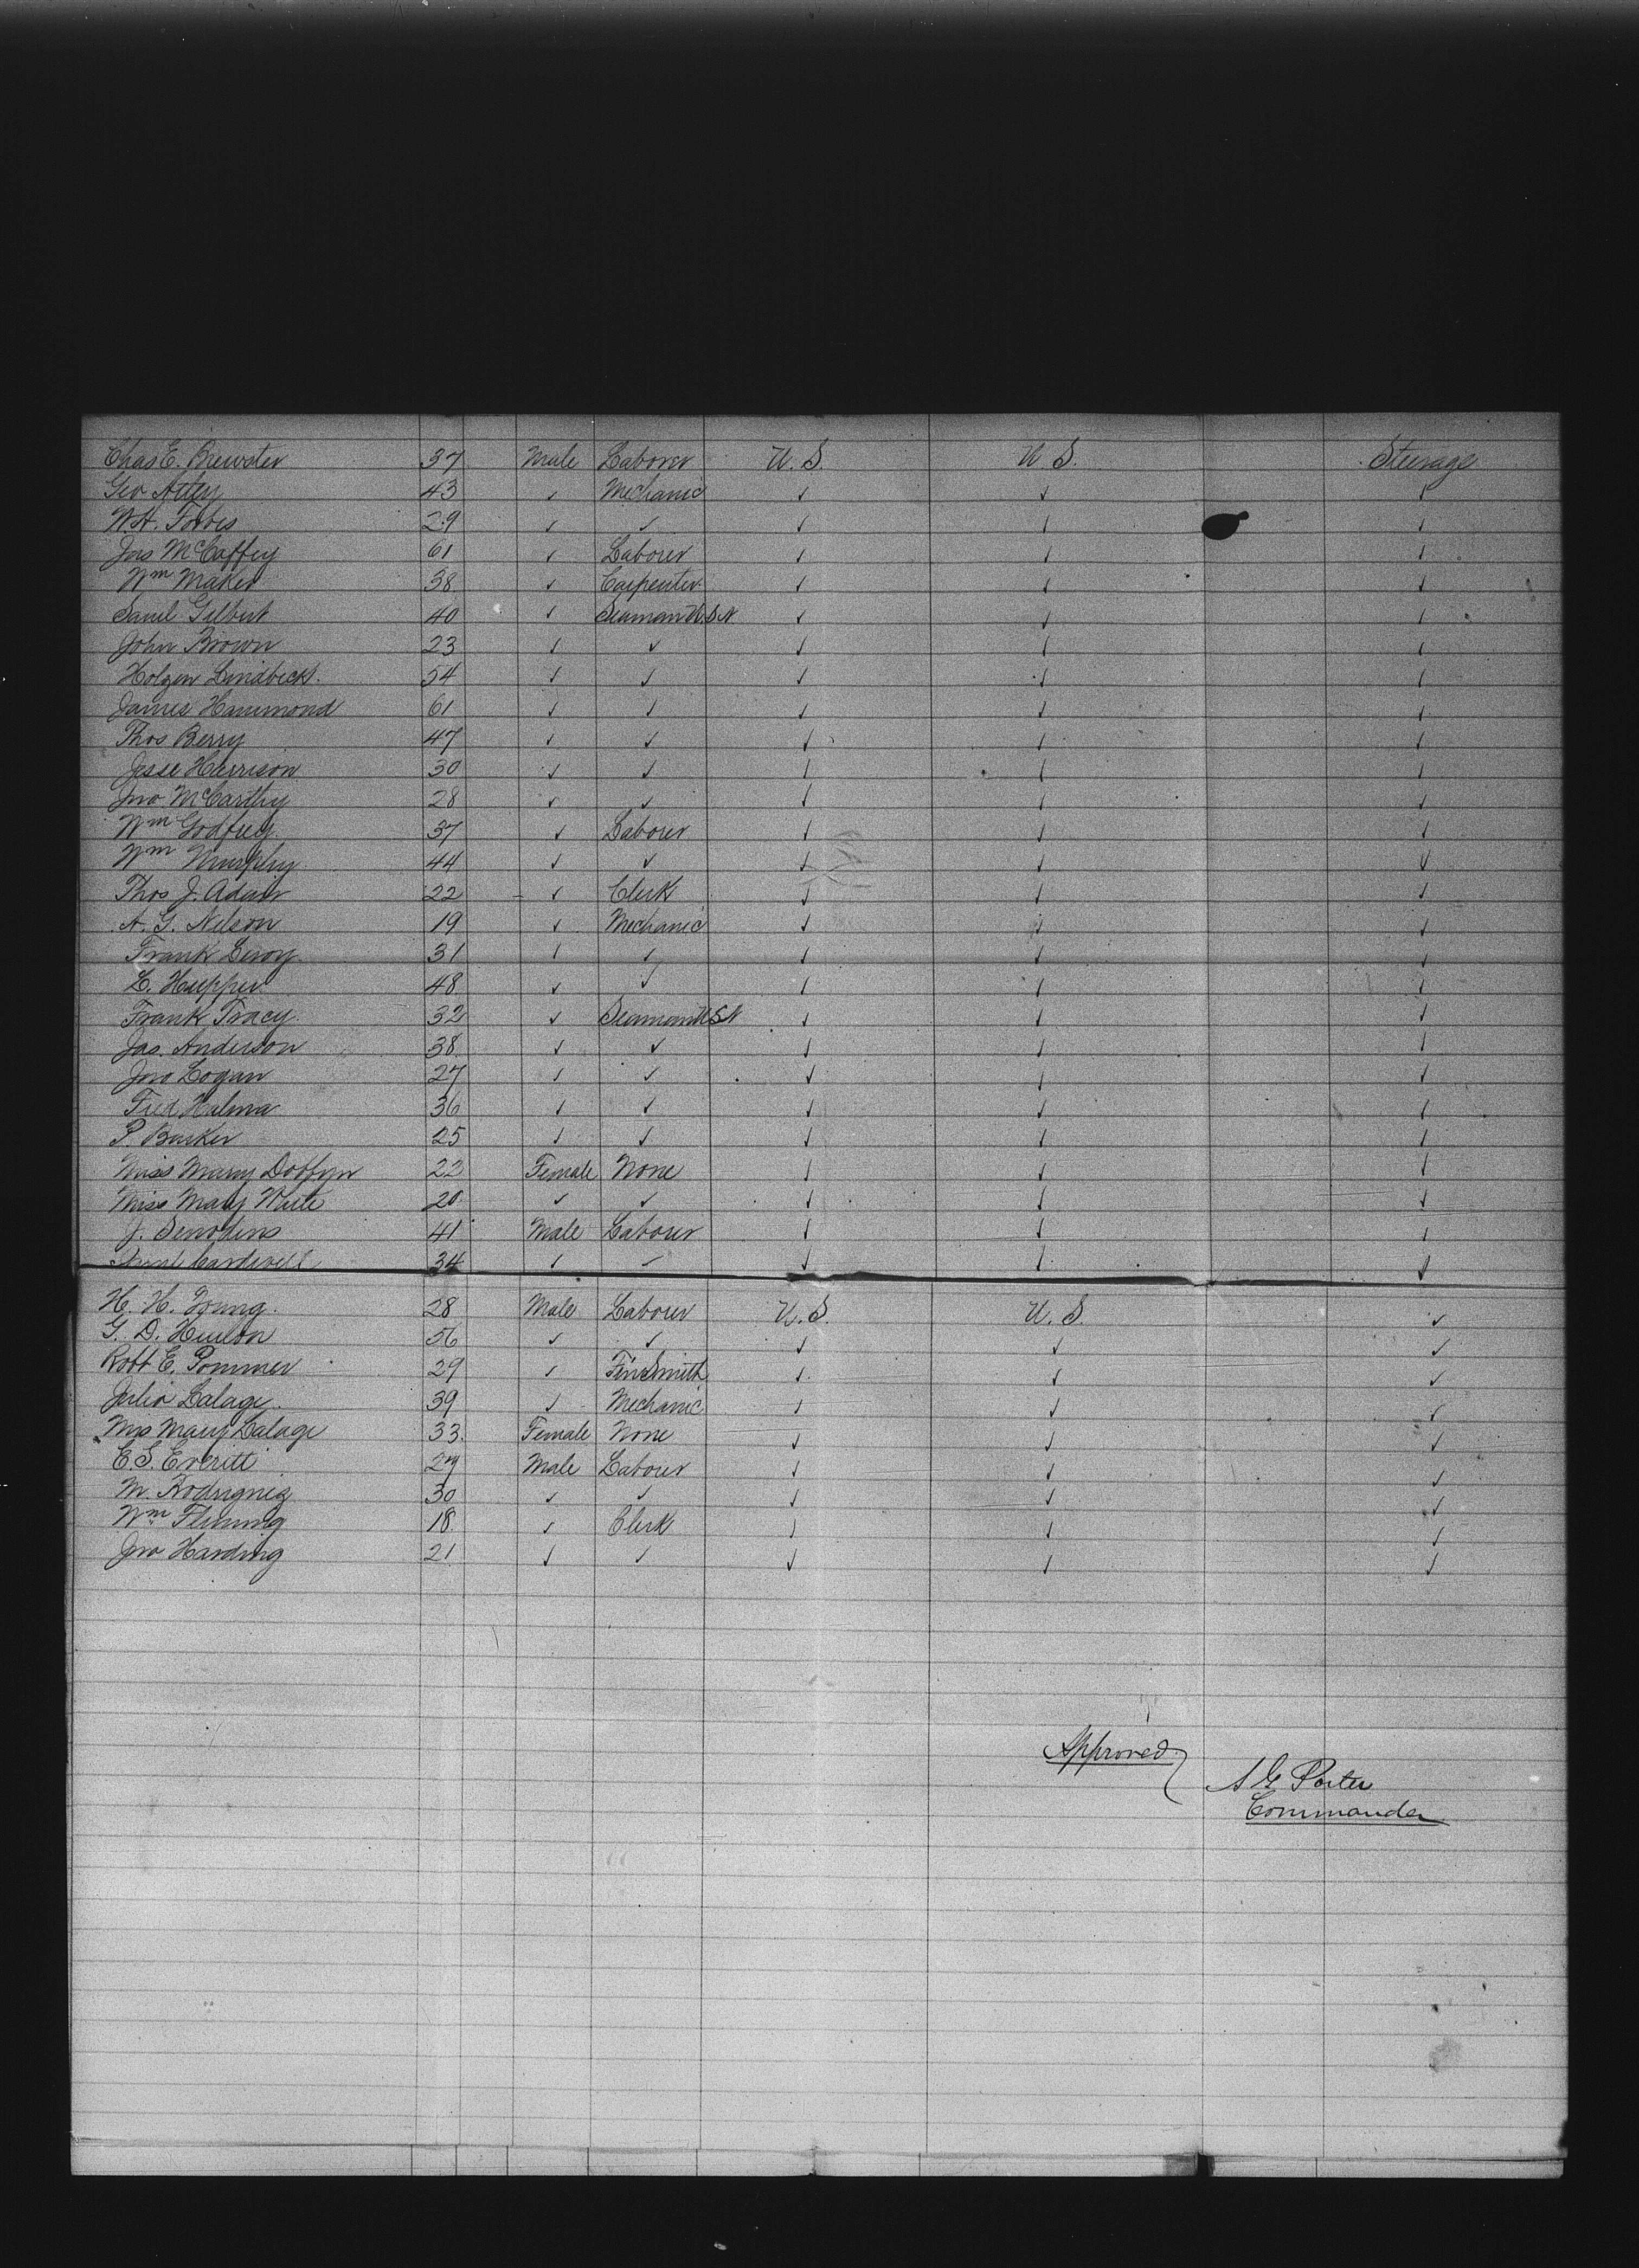 Chas E. Brewster 37 Male Laborer U. S. U S. Steerage
Geo 43 ✓ Mechanic ✓ ✓ ✓
W.H. Forbes 29 ✓ ✓ ✓ ✓ ✓
Jas McCaffey 61 ✓ Laborer ✓ ✓ ✓
Wm Maker 38 ✓ Carpenter ✓ ✓ ✓
Saml Gilbert 40 ✓ Seaman U.S.N ✓ ✓ ✓
John Brown 23 ✓ ✓ ✓ ✓ ✓
Holgen Lindbeck. 54 ✓ ✓ ✓ ✓ ✓
James Hammond 61 ✓ ✓ ✓ ✓ ✓
Thos Berry 47 ✓ ✓ ✓ ✓ ✓
Jesse Harrison 30 ✓ ✓ ✓ ✓ ✓
Jno McCarthy 28 ✓ ✓ ✓ ✓ ✓
Wm Godfrey. 37 ✓ Laborer ✓ ✓ ✓
Wm Murphy 44 ✓ ✓ ✓ ✓ ✓
Thos J. Adair 22 ✓ Clerk ✓ ✓ ✓
A. G. Nelson 19 ✓ Mechanic ✓ ✓ ✓
Frank Leroy. 31 ✓ ✓ ✓ ✓ ✓
L. Hupper 48 ✓ ✓ ✓ ✓ ✓
Frank Tracy. 32 ✓ Seaman U.S.N ✓ ✓ ✓
Jas. Anderson 38 ✓ ✓ ✓ ✓ ✓
Jno Logan 27 ✓ ✓ ✓ ✓ ✓
Fred Halma 36 ✓ ✓ ✓ ✓ ✓
P. Barker 25 ✓ ✓ ✓ ✓ ✓
Miss Mary Dobfyn 22 Female None ✓ ✓ ✓
Miss Mary White 20 ✓ ✓ ✓ ✓ ✓
J. 41 Male Labourer ✓ ✓ ✓
Cardwell 34 ✓ ✓ ✓ ✓ ✓
H. H. Young. 28 Male Labourer U. S. U. S. ✓
G. D. Hudson 56 ✓ ✓ ✓ ✓ ✓
Robt E. Pommer 29 ✓ TinSmith ✓ ✓ ✓
Julio Lalage. 39 ✓ Mechanic ✓ ✓ ✓
Mrs Mary Lalage 33. Female None ✓ ✓ ✓
E. S. Everitt 27 Male Labourer ✓ ✓ ✓
M. Rodrignez 30 ✓ ✓ ✓ ✓ ✓
Wm Fleming 18 ✓ Clerk ✓ ✓ ✓
Jno Harding 21 ✓ ✓ ✓ ✓ ✓
Approved
A G Porter
Commander